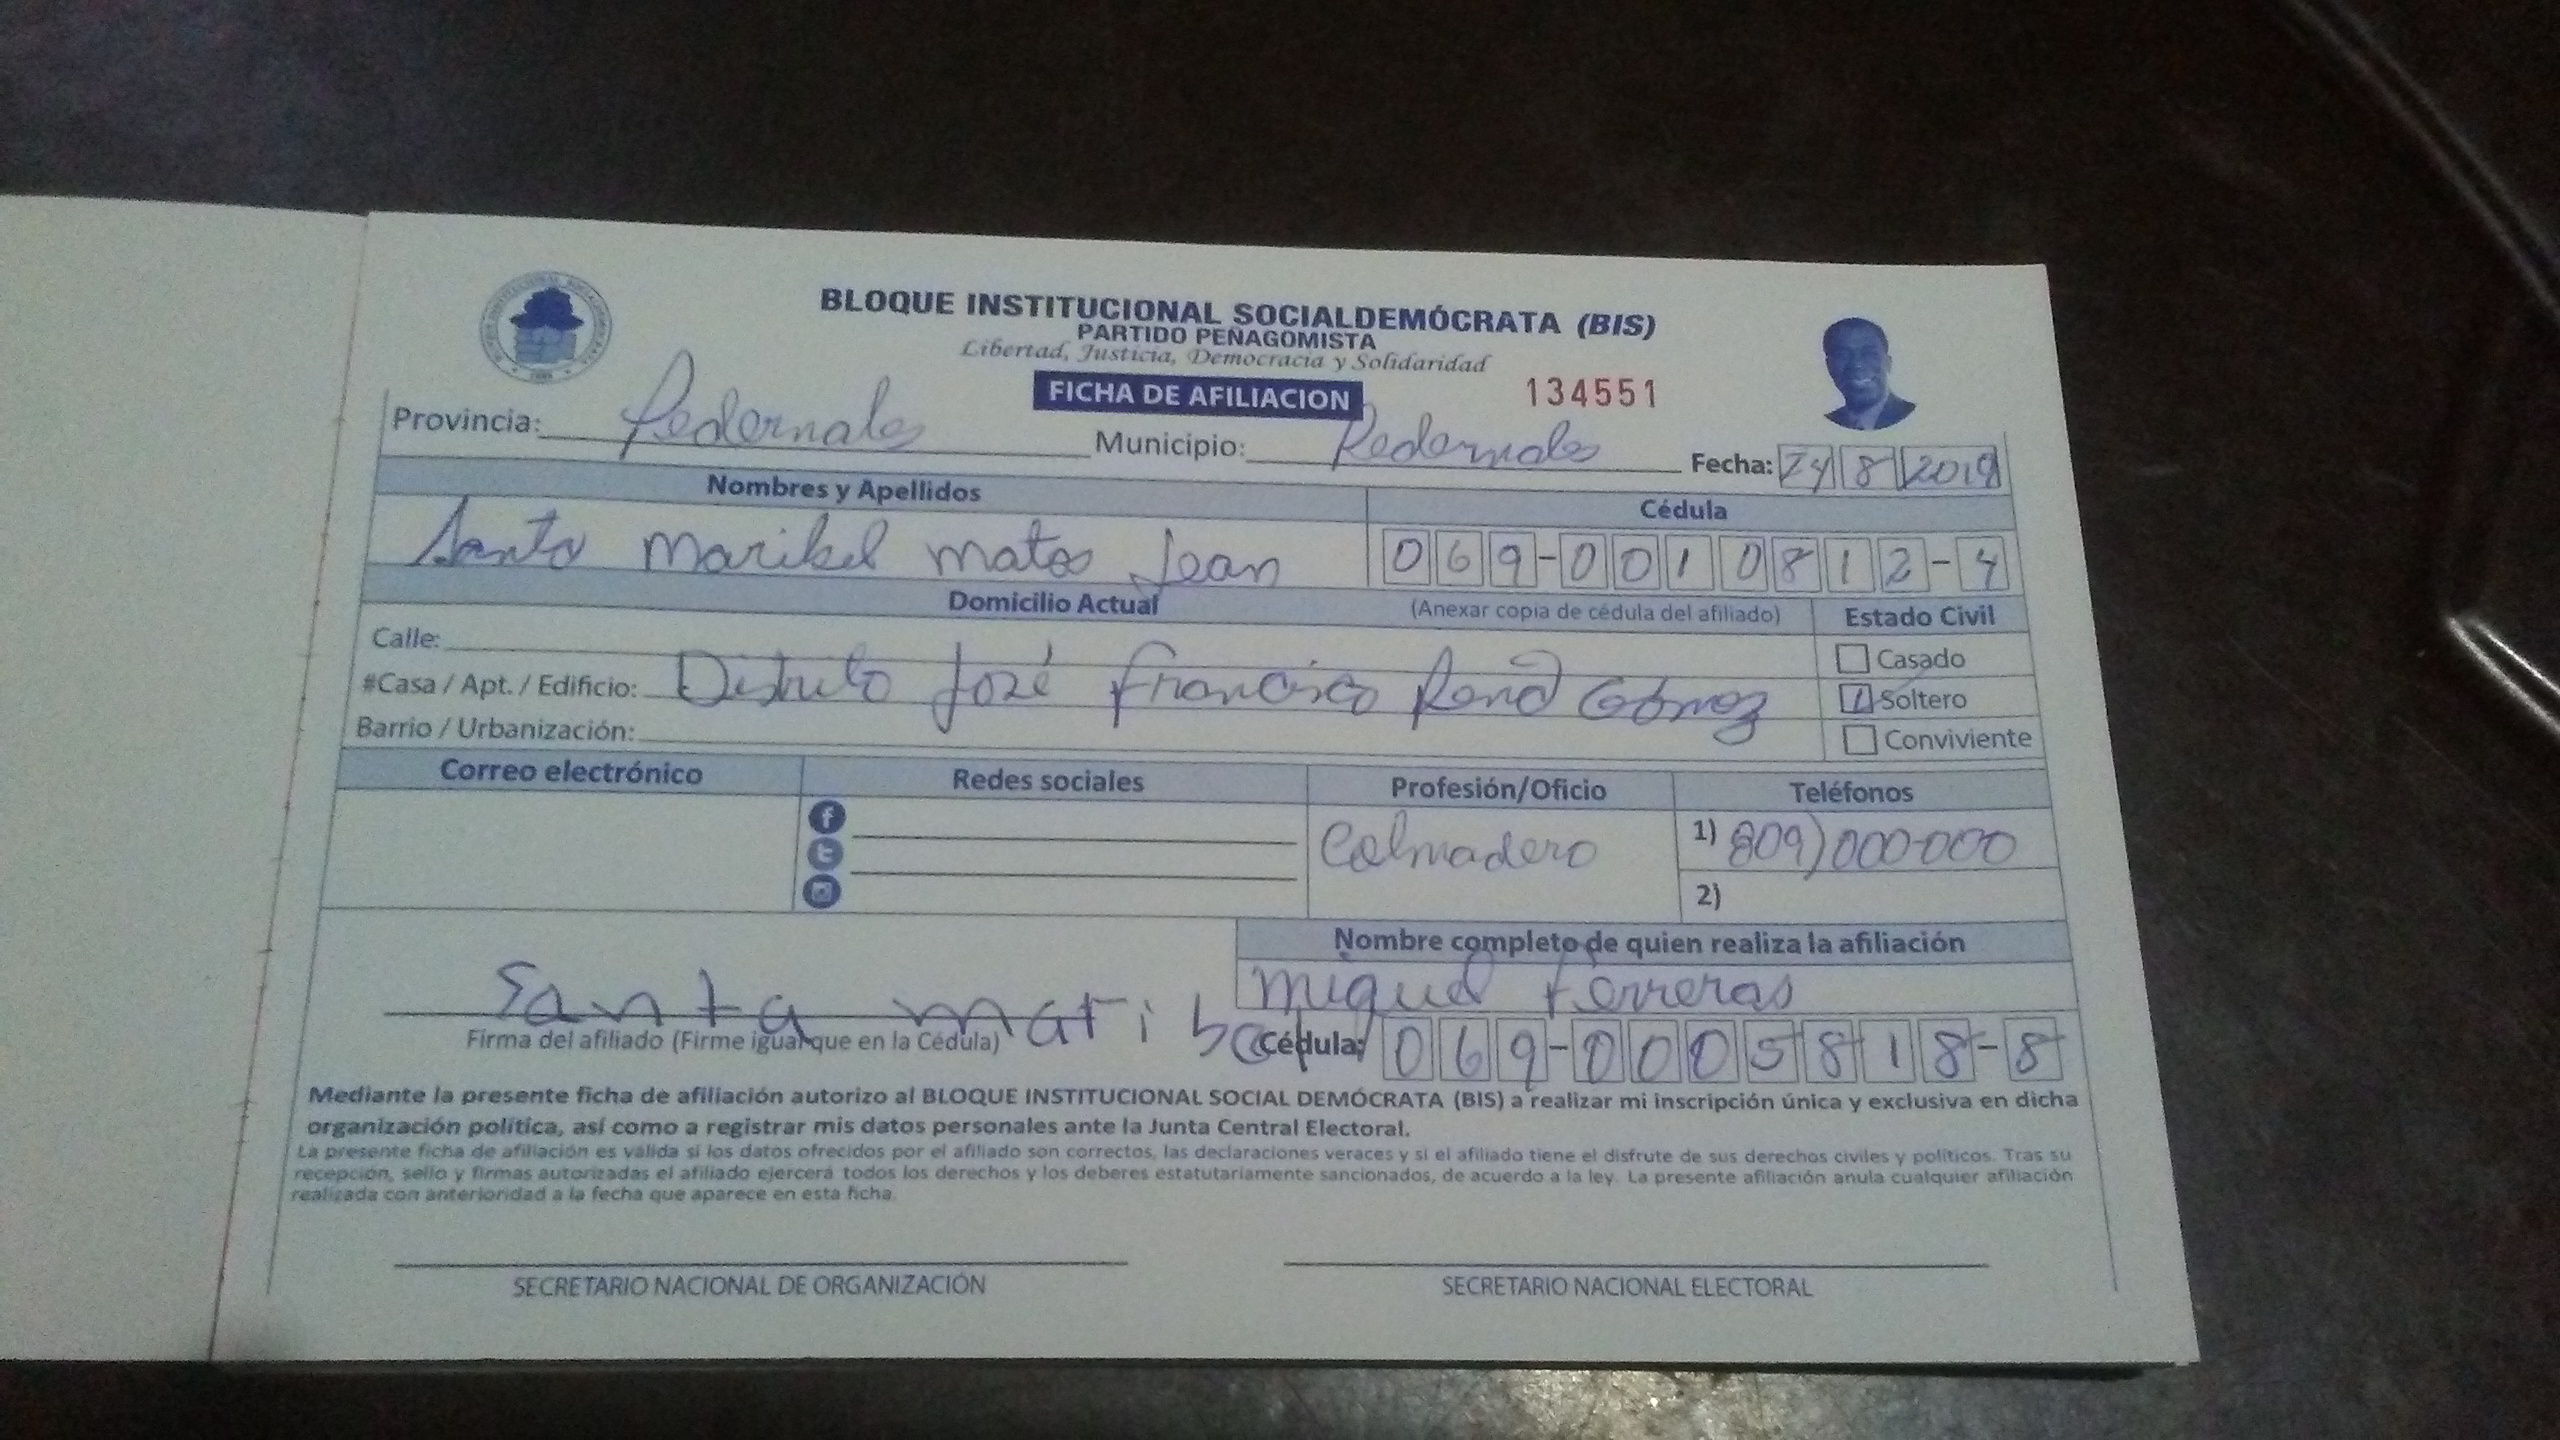 BLOQUE INSTITUCIONAL SOCIALDEMÓCRATA (BIS)
PARTIDO PEÑAGOMISTA
Libertad, Justicia, Democracia y Solidaridad
FICHA DE AFILIACION 134551
Provincia: Pedernales Municipio: Pedernales Fecha: 24 8 2019
Nombres y Apellidos Cédula
Santa Maribel Matos Jean 069-0010812-4
Domicilio Actual (Anexar copia de cédula del afiliado) Estado Civil
Calle: Casado
#Casa / Apt. / Edificio: Distrito José Francisco Peña Gómez Soltero
Barrio / Urbanización: Conviviente
Correo electrónico Redes sociales Profesión/Oficio Teléfonos
Colmadero 1) 809)000-000
2)
Nombre completo de quien realiza la afiliación
Miguel Ferreras
Santa Maribel
Firma del afiliado (Firme igual que en la Cédula) Cédula: 069-0005818-8
Mediante la presente ficha de afiliación autorizo al BLOQUE INSTITUCIONAL SOCIAL DEMÓCRATA (BIS) a realizar mi inscripción única y exclusiva en dicha
organización política, así como a registrar mis datos personales ante la Junta Central Electoral.
La presente ficha de afiliación es válida si los datos ofrecidos por el afiliado son correctos, las declaraciones veraces y si el afiliado tiene el disfrute de sus derechos civiles y políticos. Tras su
recepción, sello y firmas autorizadas el afiliado ejercerá todos los derechos y los deberes estatutariamente sancionados, de acuerdo a la ley. La presente afiliación anula cualquier afiliación
realizada con anterioridad a la fecha que aparece en esta ficha.
SECRETARIO NACIONAL DE ORGANIZACIÓN SECRETARIO NACIONAL ELECTORAL